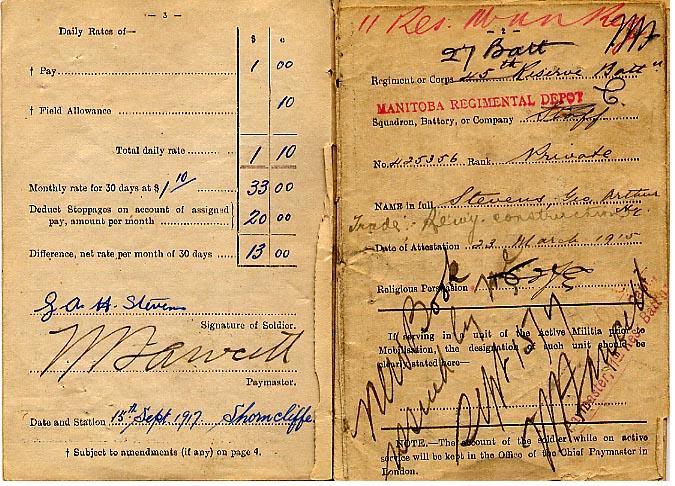 — 3 —
Daily Rates of—
$ c
† Pay 1 00
† Field Allowance 10
Total daily rate 1 10
Monthly rate for 30 days at $ 1 10 33 00
Deduct Stoppages on account of assigned
pay, amount per month 20 00
Difference, net rate per month of 30 days 13 00
G. A. H. Stevens
Signature of Soldier.
Paymaster.
Date and Station 15th Sept 1917 Shorncliffe
† Subject to amendments (if any) on page 4.
11 Res.
— 2 —
27 Batt
Regiment or Corps 45th Reserve Batt
MANITOBA REGIMENTAL DEPOT
Squadron, Battery, or Company Staff
No. 425356 Rank Private
NAME in full Stevens, Geo Arthur
Trade:- Heavy construction
Date of Attestation 23 March 1915
Religious Persuasion
If serving in a unit of the Active Militia prior to
Mobilisation, the designation of such unit should be
clearly stated here—
New Book
issued by me
Sept 15/17
NOTE.—The account of the soldier while on active
service will be kept in the Office of the Chief Paymaster in
London.